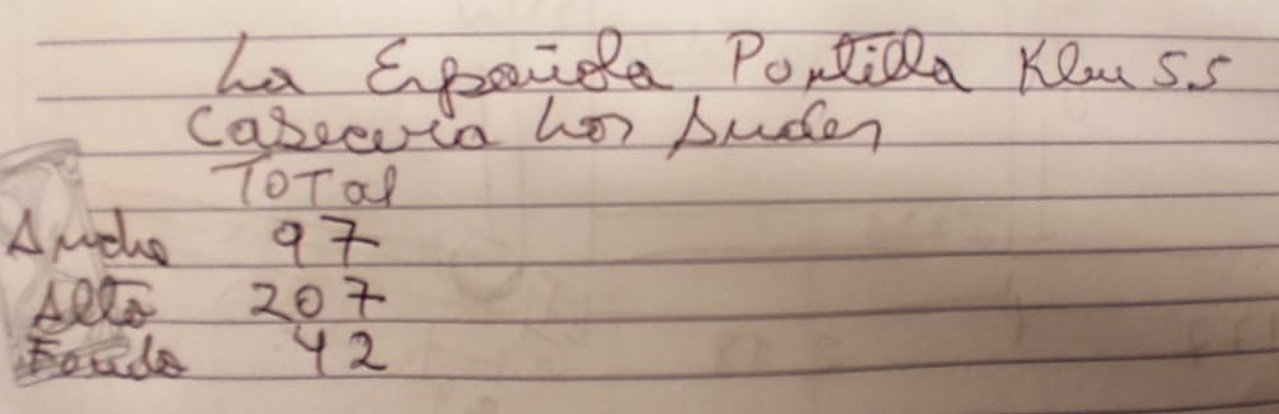 La Española Portilla Klm 5.5
Caseceria Los Andes
TOTal
Ancho 97
Alto 207
Fondo 42